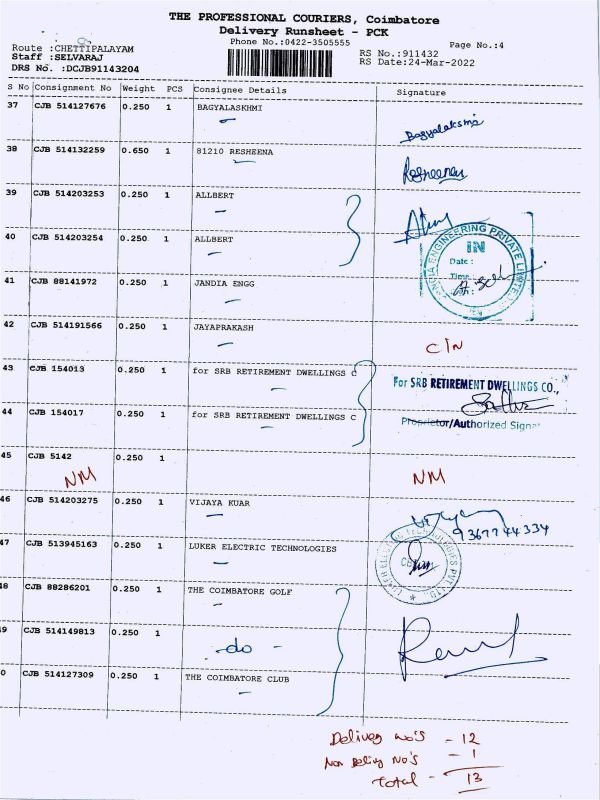 THE PROFESSIONAL COURIERS, Coimbatore
Delivery Runsheet - PCK
Phone No.:0422-3505555
Page No.:4
Route :CHETTIPALAYAM
Staff :SELVARAJ
DRS No. :DCJB91143204
RS No.:911432
RS Date:24-Mar-2022
S No Consignment No Weight PCS Consignee Details Signature
37 CJB 514127676 0.250 1 BAGYALASKHMI Bagyalakshmi
38 CJB 514132259 0.650 1 81210 RESHEENA
39 CJB 514203253 0.250 1 ALLBERT
40 CJB 514203254 0.250 1 ALLBERT
41 CJB 88141972 0.250 1 JANDIA ENGG
JANDIA ENGINEERING PRIVATE LIMITED
IN
Date :
Time
42 CJB 514191566 0.250 1 JAYAPRAKASH C/N
43 CJB 154013 0.250 1 for SRB RETIREMENT DWELLINGS C
For SRB RETIREMENT DWELLINGS CO.,
44 CJB 154017 0.250 1 for SRB RETIREMENT DWELLINGS C
Proprietor/Authorized Signa
45 CJB 5142 0.250 1
NM NM
46 CJB 514203275 0.250 1 VIJAYA KUAR
9367744334
47 CJB 513945163 0.250 1 LUKER ELECTRIC TECHNOLOGIES
LUKER ELECTRIC TECHNOLOGIES PVT. LTD
48 CJB 88286201 0.250 1 THE COIMBATORE GOLF
49 CJB 514149813 0.250 1 -do -
0 CJB 514127309 0.250 1 THE COIMBATORE CLUB
Delivey No's - 12
Non Delivy No's - 1
Total - 13